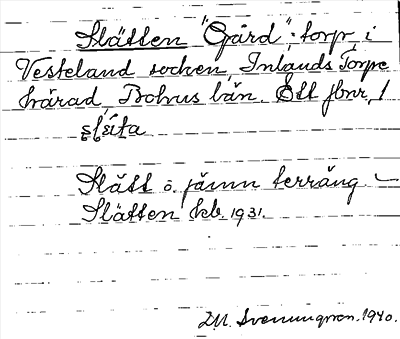 Slätten "Gård": torp i
Vesteland socken, Inlands Torpe
härad, Bohus län. Ett jbnr, 1
Slätt o. jämn terräng –
Slätten kb. 1931.
D.M. Svenungsson. 1940.